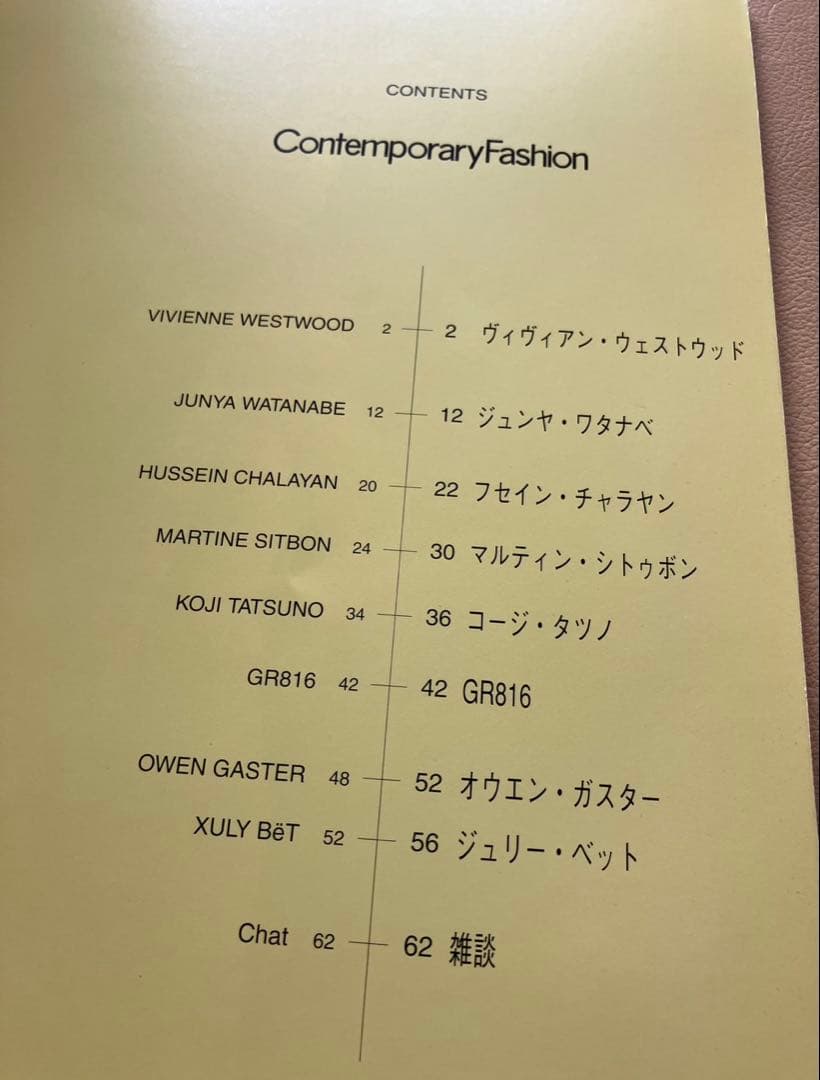 CONTENTS
ContemporaryFashion
VIVIENNE WESTWOOD 2 2 ヴィヴィアン・ウェストウッド
JUNYA WATANABE 12 12 ジュンヤ・ワタナベ
HUSSEIN CHALAYAN 20 22 フセイン・チャラヤン
MARTINE SITBON 24 30 マルティン・シトゥボン
KOJI TATSUNO 34 36 コージ・タツノ
GR816 42 42 GR816
OWEN GASTER 48 52 オウエン・ガスター
XULY BëT 52 56 ジュリー・ベット
Chat 62 62 雑談